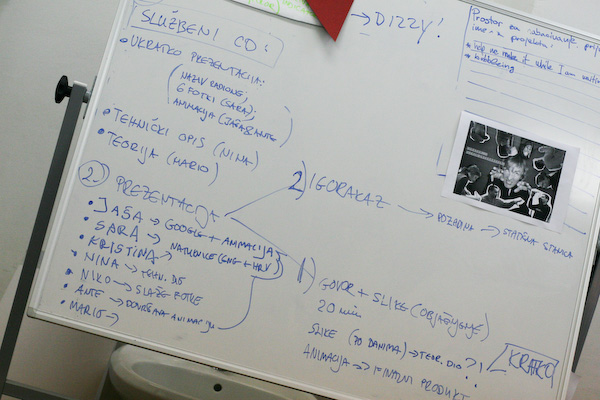 SLUŽBENI CD:
UKRATKO PREZENTACIJA:
(NAZIV RADIONE,
6 FOTKI (SARA),
ANIMACIJA (JAŠA & ANTE)
TEHNIČKI OPIS (NINA)
TEORIJA (MARIO)
2.) PREZENTACIJA
JAŠA → GOOGLE + ANIMACIJA
SARA → NATUKNICE (ENG + HRV)
KRISTINA
NINA → TEHN. DIO
NIKO → SLAŽE FOTKE
ANTE → DOVRŠAVA ANIMACIJU
MARIO →
→ DIZZY!
2) IGROKAZ
→ POZADINA → STATIČNA
1) GOVOR + SLIKE (OBJAŠNJENJE)
20 min
SLIKE (PO DANIMA) → TEOR. DIO ?!
KRATKO
ANIMACIJA → FINALNI PRODUKT
Prostor za
imena projekta:
help me make it while I am waiting